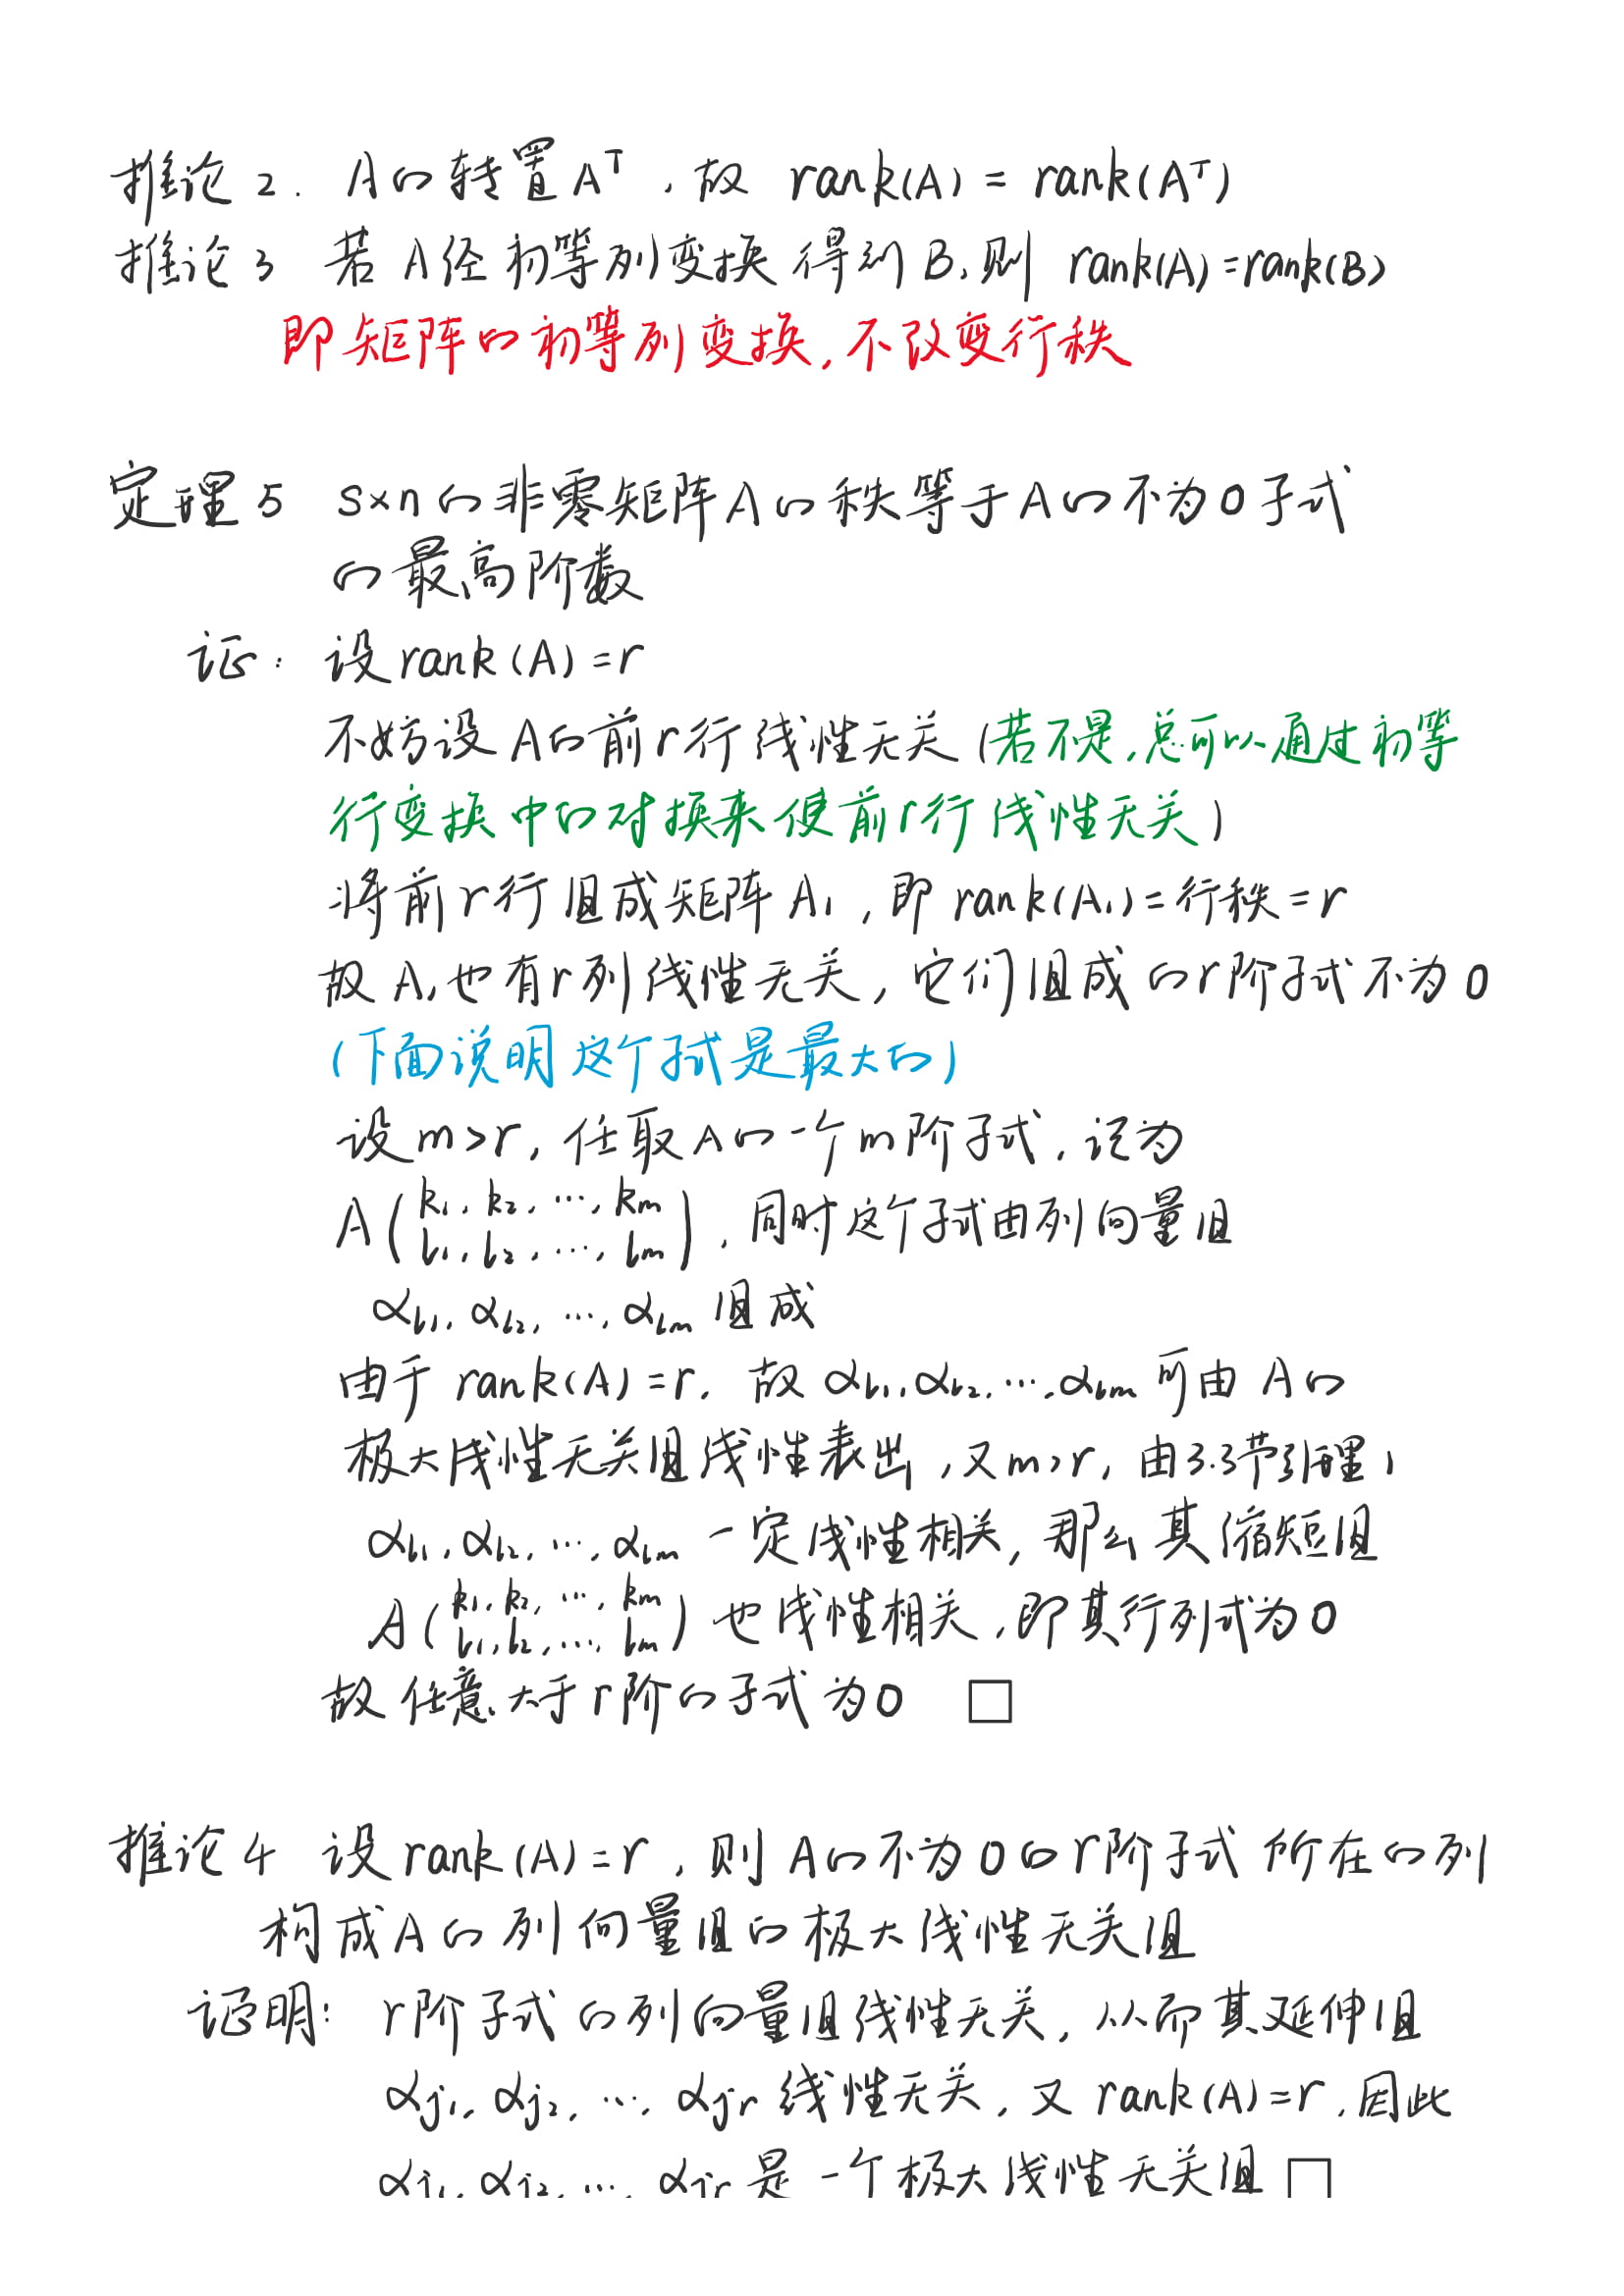 推论2. A的转置Aᵀ,故 rank(A) = rank(Aᵀ)
推论3 若A经初等列变换得到B,则 rank(A)=rank(B)
即矩阵的初等列变换,不改变行秩
定理5 s×n的非零矩阵A的秩等于A的不为0子式
的最高阶数
证: 设rank(A)=r
不妨设A的前r行线性无关(若不是,总可以通过初等
行变换中的对换来使前r行线性无关)
将前r行组成矩阵A₁,即rank(A₁)=行秩=r
故A₁也有r列线性无关,它们组成的r阶子式不为0
(下面说明这个子式是最大的)
设m>r,任取A的一个m阶子式,记为
A(k₁,k₂,…,kₘ; l₁,l₂,…,lₘ),同时这个子式由列向量组
α_l₁,α_l₂,…,α_lₘ组成
由于rank(A)=r,故α_l₁,α_l₂,…,α_lₘ可由A的
极大线性无关组线性表出,又m>r,由3.3节引理1
α_l₁,α_l₂,…,α_lₘ一定线性相关,那么其缩短组
A(k₁,k₂,…,kₘ; l₁,l₂,…,lₘ)也线性相关,即其行列式为0
故任意大于r阶的子式为0 □
推论4 设rank(A)=r,则A的不为0的r阶子式所在的列
构成A的列向量组的极大线性无关组
证明: r阶子式的列向量组线性无关,从而其延伸组
α_j₁,α_j₂,…,α_jᵣ线性无关,又rank(A)=r,因此
α_j₁,α_j₂,…,α_jᵣ是一个极大线性无关组 □